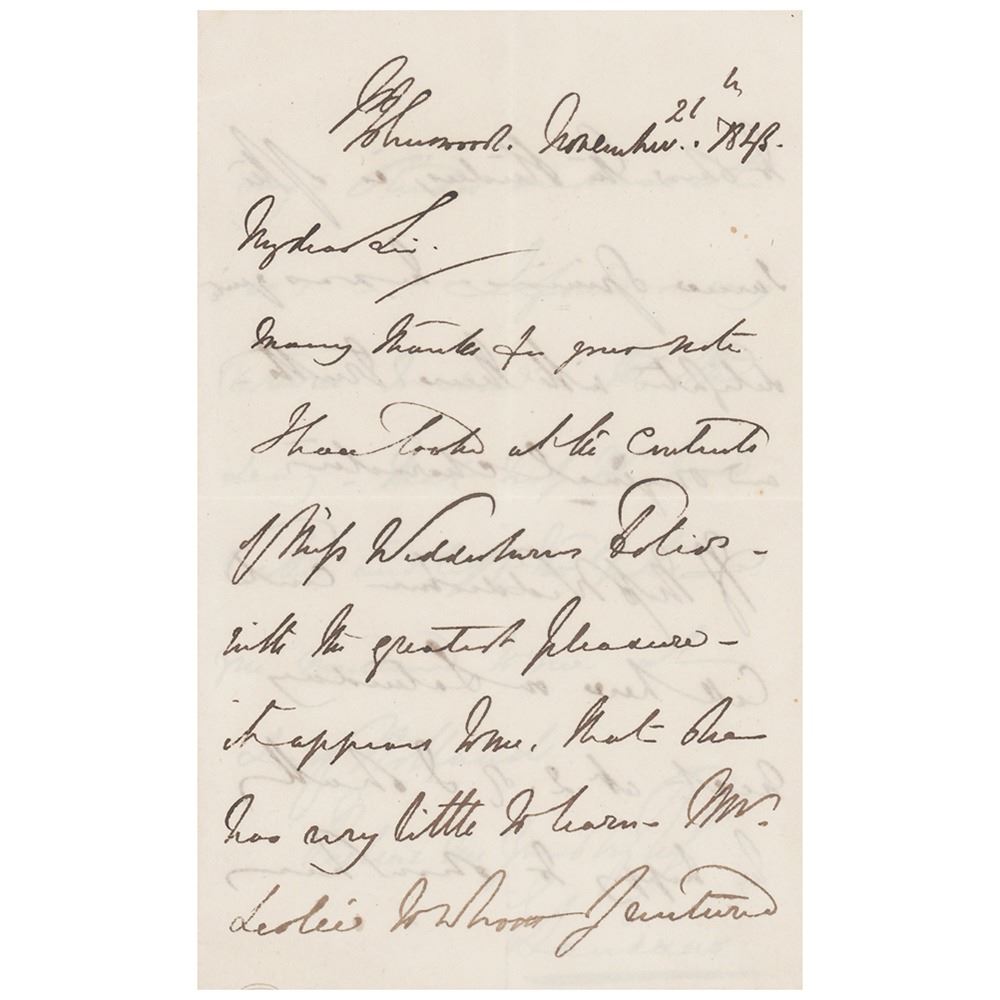 St Johns wood. November 21th 1848.
My dear Sir.
Many thanks for your note
I have looked at the contents
of Miss Wedderburns Folios -
with the greatest pleasure -
it appears to me. that she
has very little to learn - Mr.
Leslie to whom I ventured